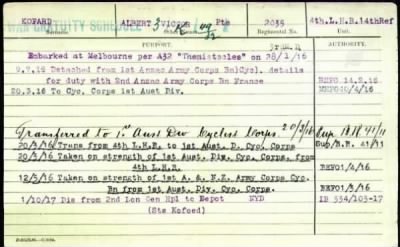 KOFARD ALBERT VICTOR Pte 2035 4th.L.H.R.14thRef
WAR GRATUITY SCHEDULE
Regimental No.
PURPORT. AUTHORITY.
Embarked at Melbourne per A32 "Themistocles" on 28/1/16
9.7.16 Detached from 1st Anzac Army Corps Bn(Cyc). details
for duty with 2nd Anzac Army Corps Bn France
20.3.16 To Cyc. Corps 1st Aust Div.
Transferred to 1st Aust Div Cyclist Corps. 20/3/16
20/3/16 Trans from 4th L.H.R. to 1st Aust. D. Cyc. Corps Sub/B.R. 41/11
20/3/16 Taken on strength of 1st Aust. Div. Cyc. Corps. from
4th L.H.R. BEFO1/4/16
12/5/16 Taken on strength of 1st A. & N.Z. Army Corps Cyc.
Bn from 1st Aust. Div. Cyc. Corps. BEFO1/4/16
1/10/17 Dis from 2nd Lon Gen Hpl to Depot NYD IB 554/103-17
(Sts Kofoed)